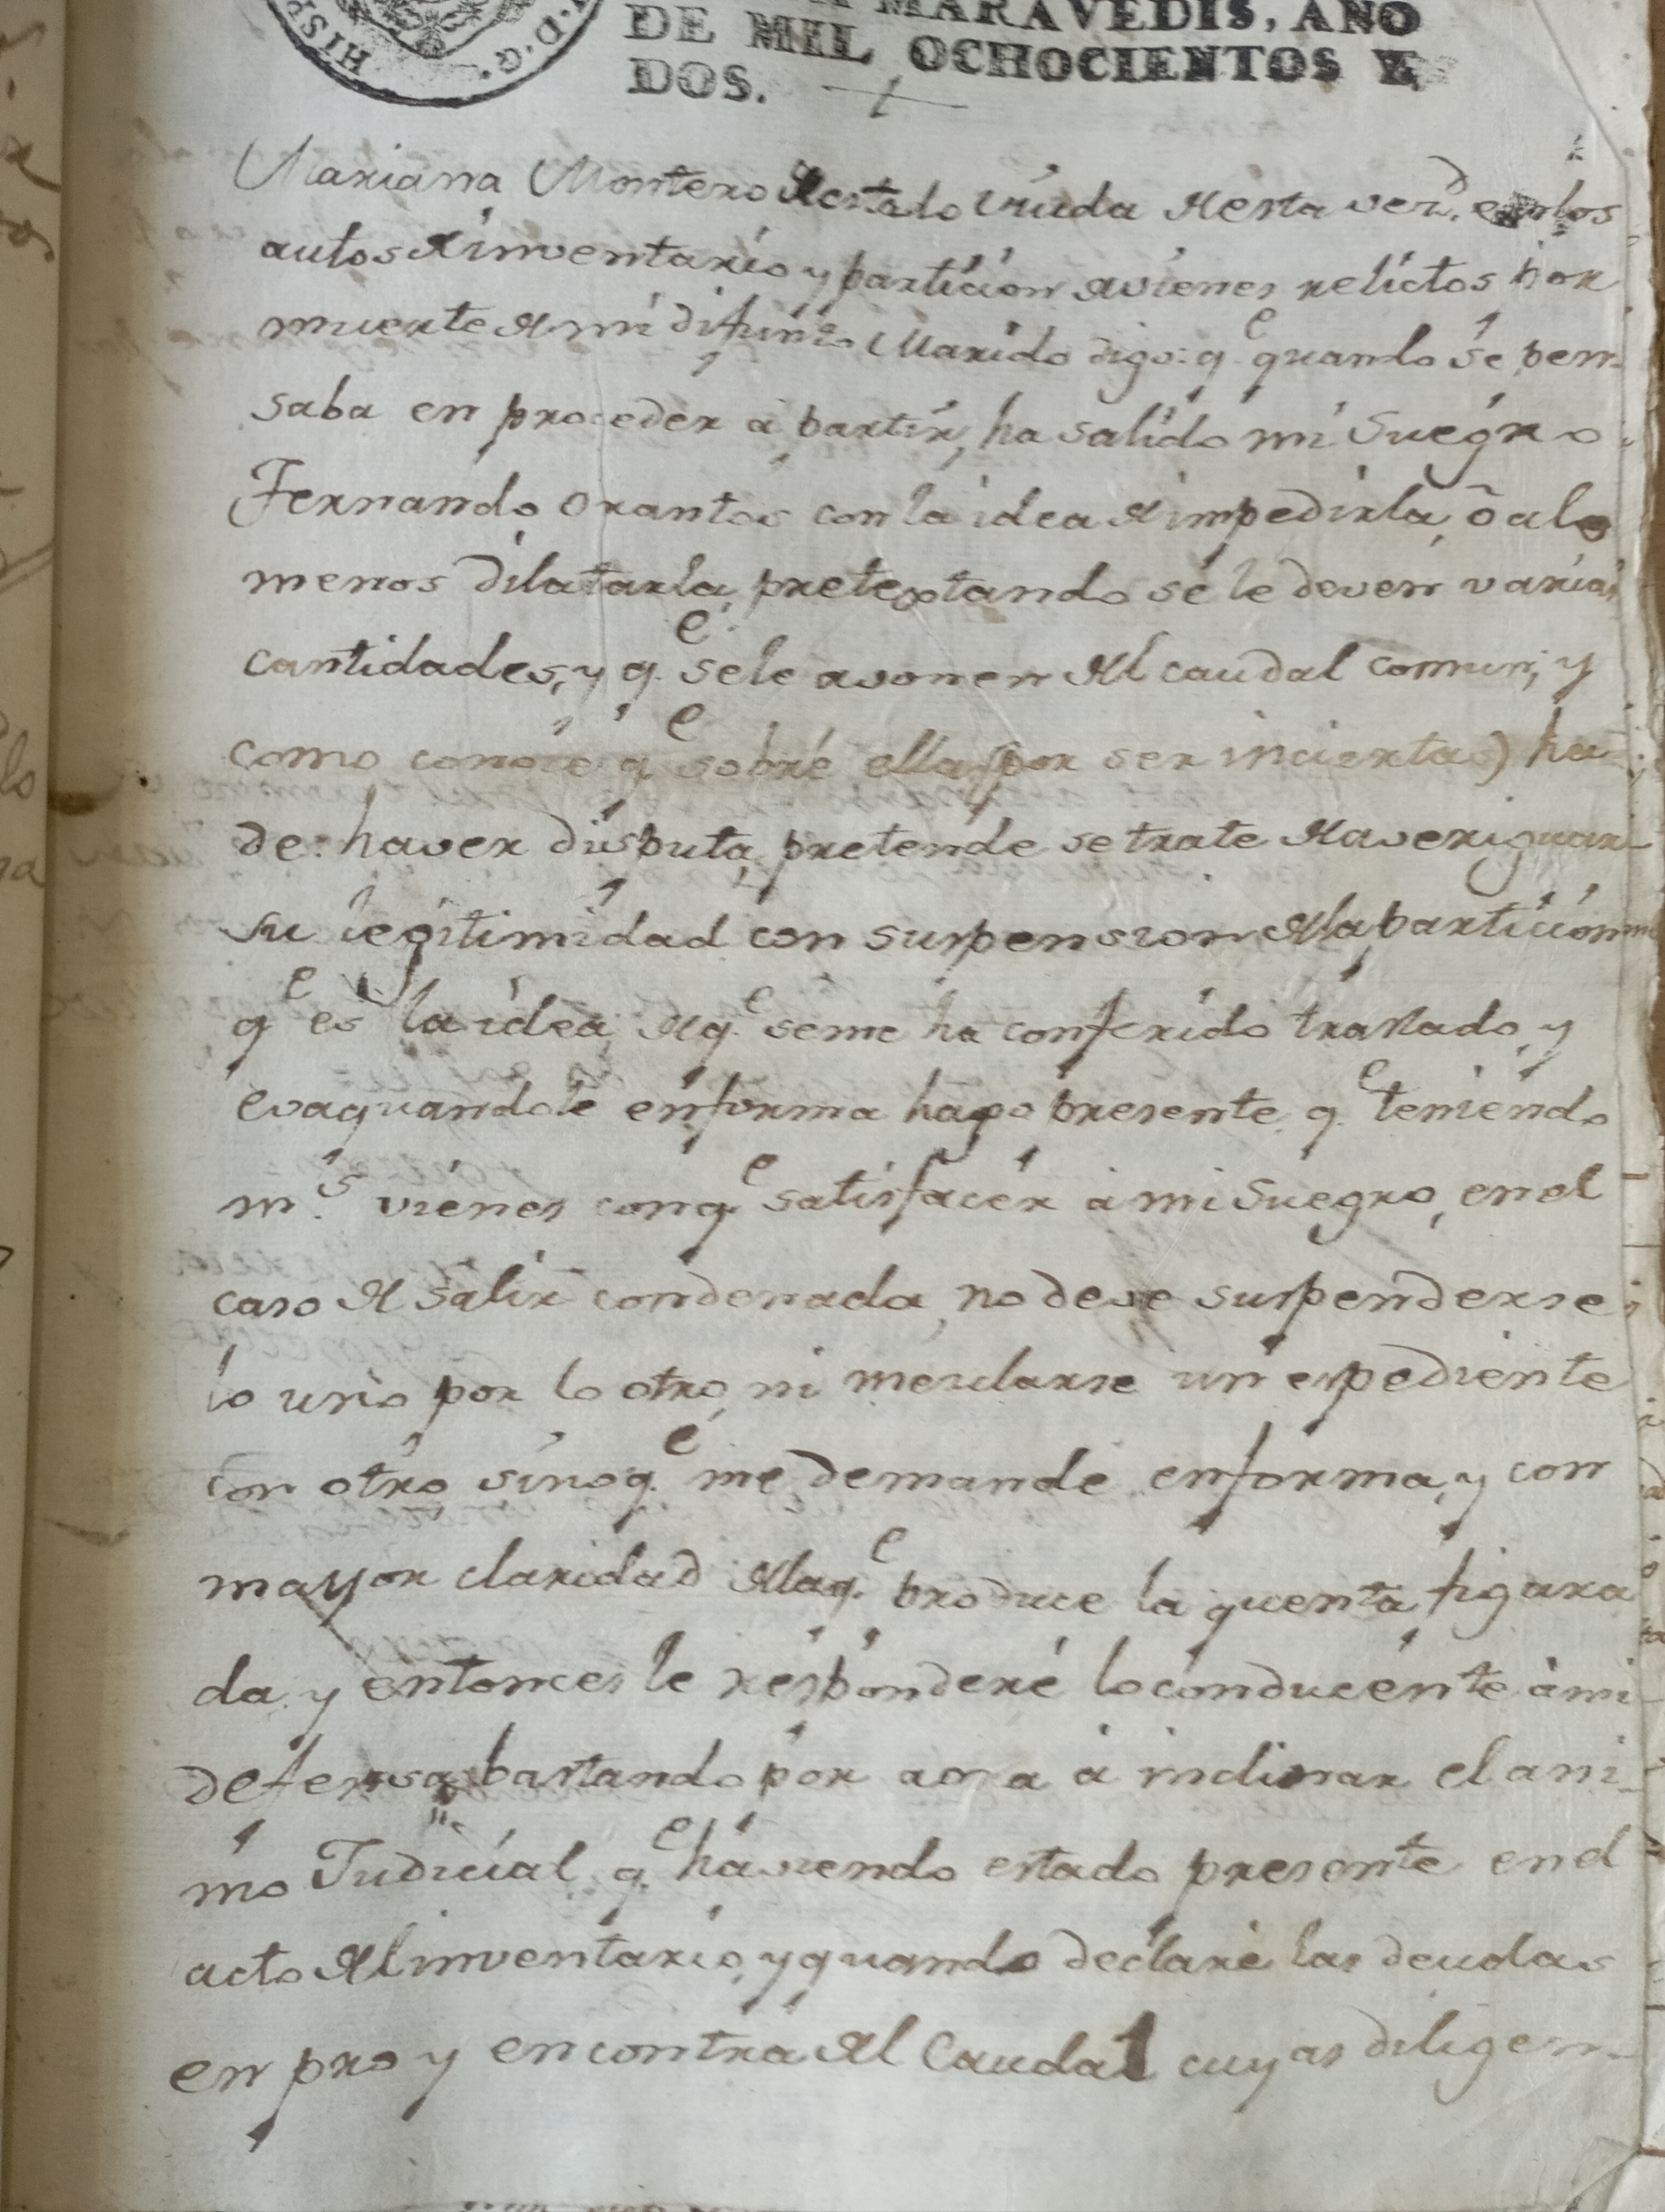 HISP
D. G.
MARAVEDIS, AÑO
DE MIL OCHOCIENTOS Y
DOS.
Mariana Montero de estado viuda de esta vez.d en los
autos de inventario y particion de vienes relictos por
muerte de mi difunto Marido digo: q.e quando se pen-
saba en proceder a partir, ha salido mi Suegro
Fernando Orantos con la idea de impedirla, ò a lo
menos dilatarla, pretextando se le deven varias
cantidades, y q.e se le avonen del caudal comun; y
como conoce q.e sobre ellas (por ser inciertas) ha
de haver disputa, pretende se trate de averiguar
su legitimidad con suspension de la particion
q.e es la idea, de q.e se me ha conferido traslado, y
evaquandole en forma hago presente q.e teniendo
m.s vienes con q.e satisfacer à mi Suegro, en el
caso de salir condenada, no deve suspenderse
lo uno por lo otro, ni mesclarse un espediente
con otro, sino q.e me demande en forma, y con
mayor claridad de la q.e produce la quenta figura
da, y entonces le responderé lo conducente à mi
defensa, bastando por aora à inclinar el ani-
mo Judicial, q.e haviendo estado presente en el
acto del inventario, y quando declaré las deudas
en pro y en contra del Caudal cuyas diligen-